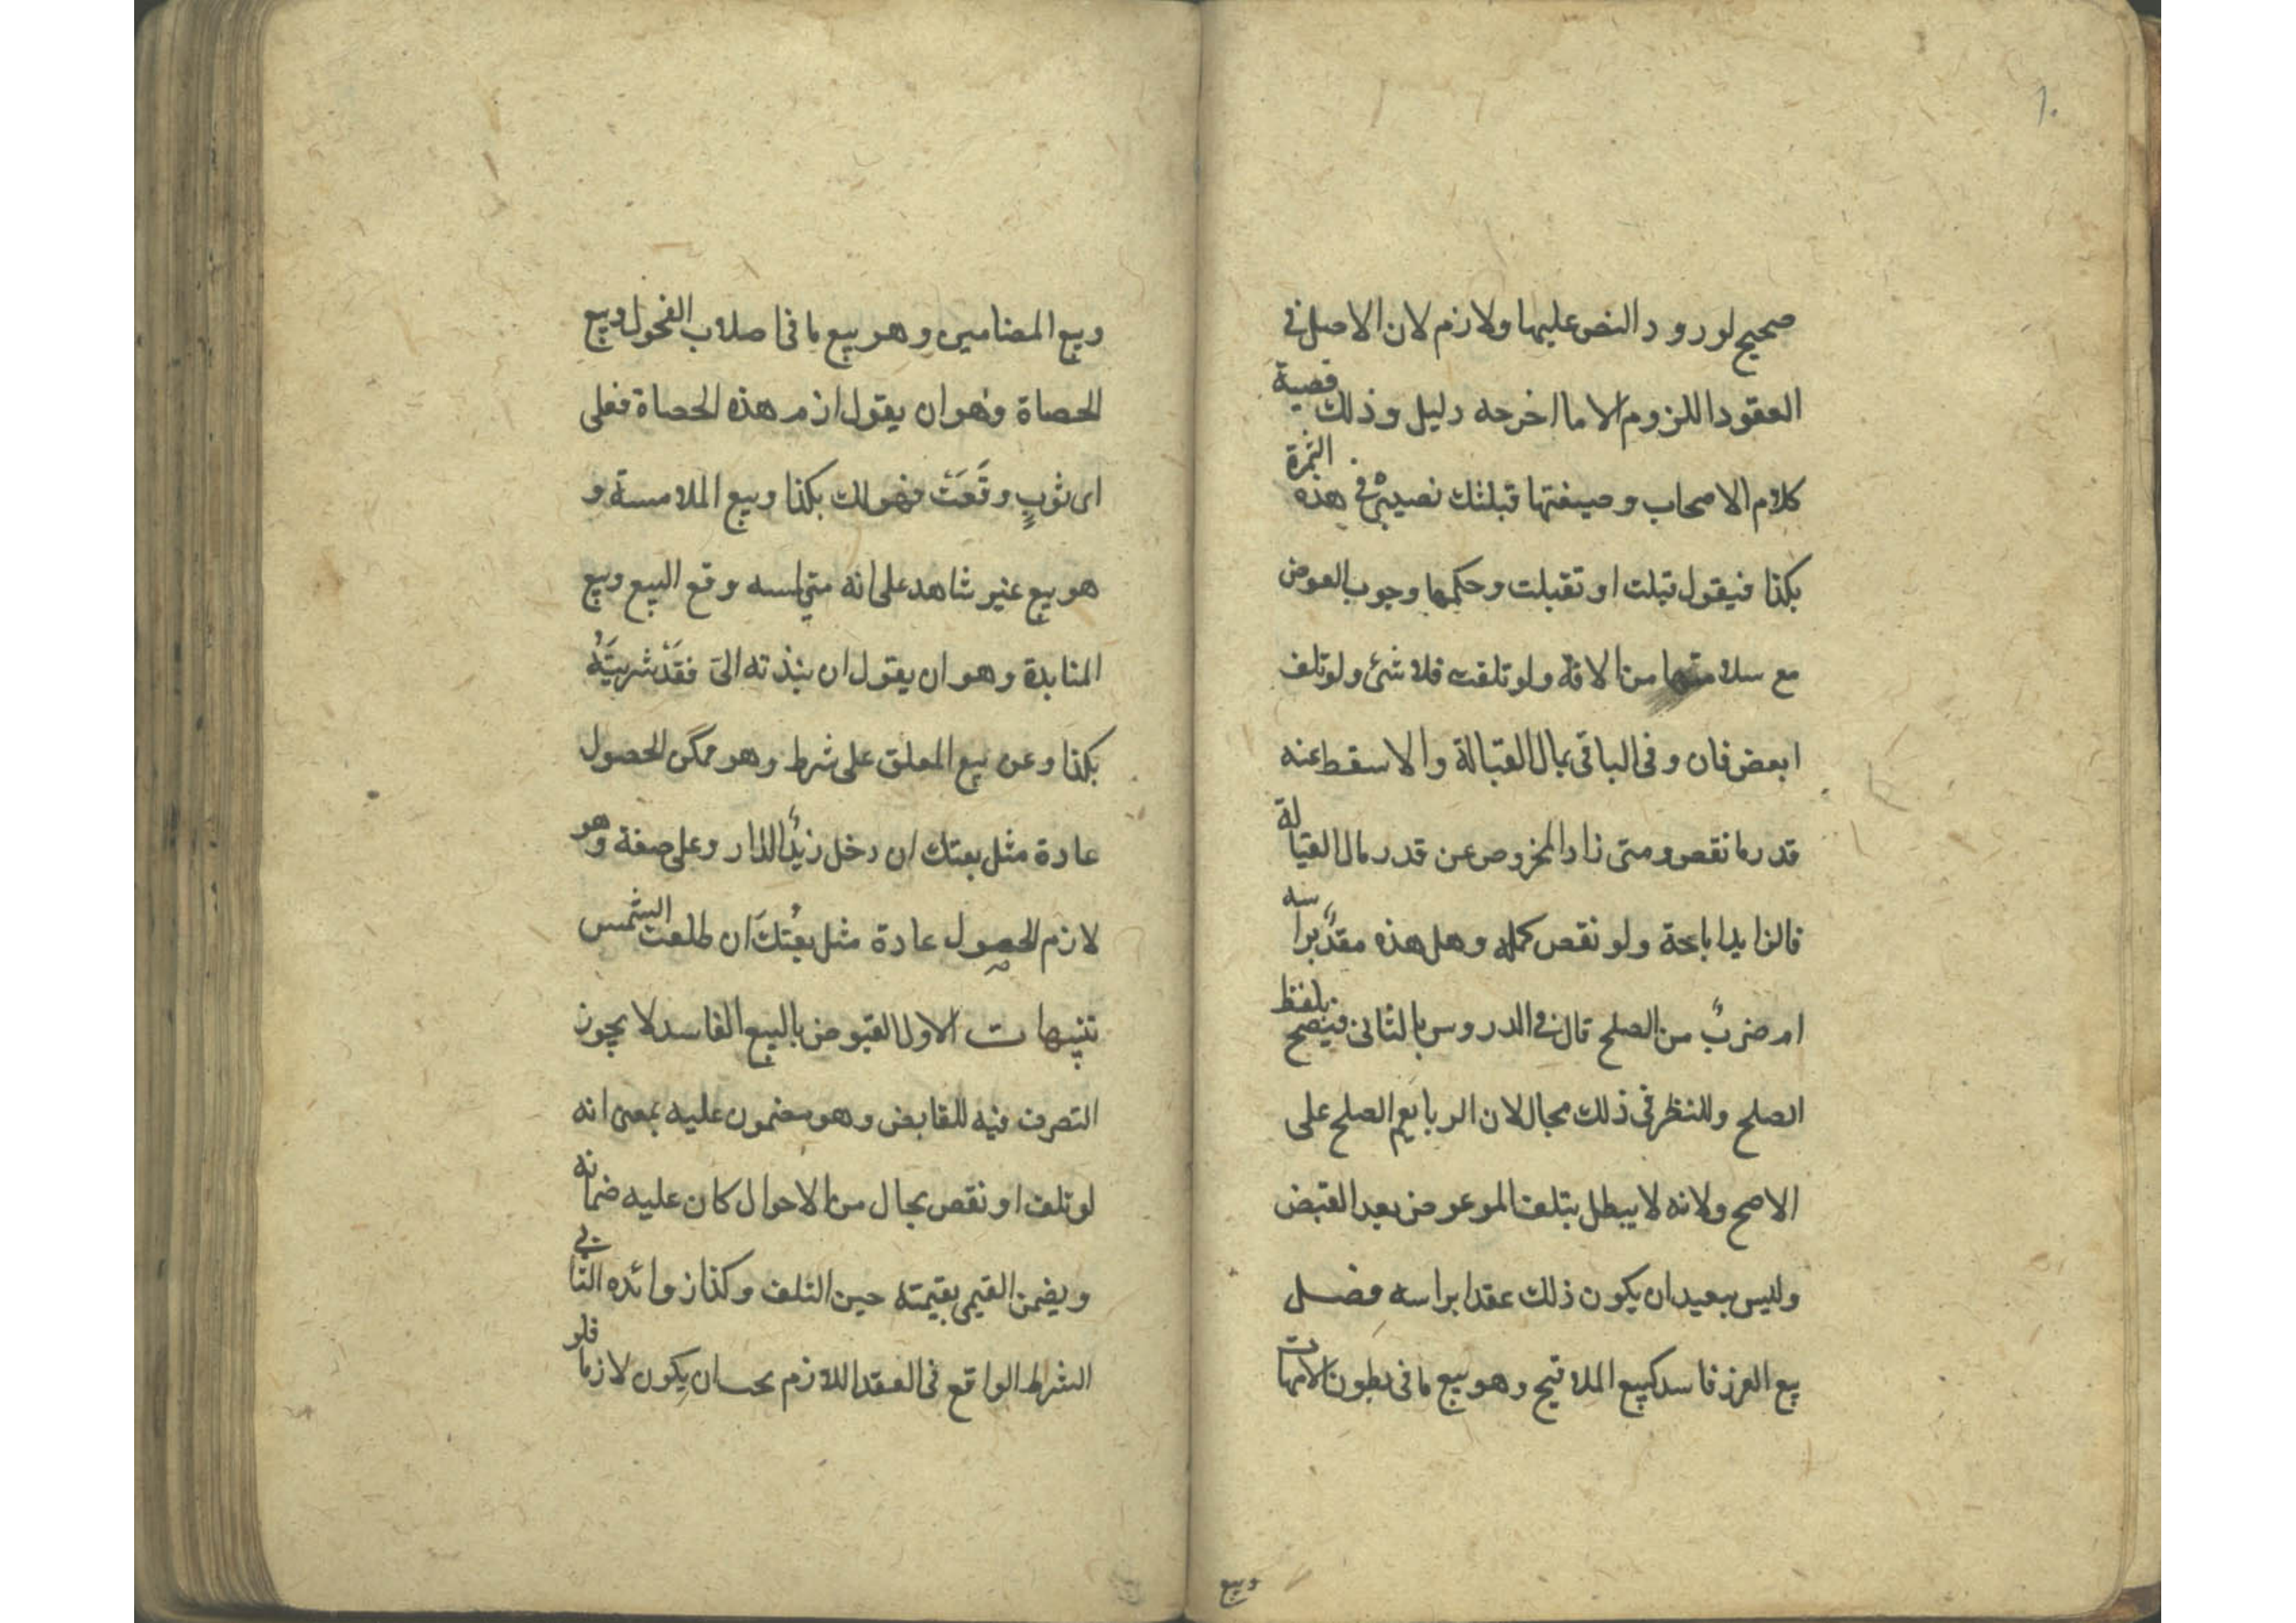 ١٠
صحيح لورود النص عليها ولازم لان الاصل في
العقود اللزوم الا ما اخرجه دليل وذلك قضية
كلام الاصحاب وصيغتها قبلتك نصيبي في هذه الثمرة
بكذا فيقول قبلت او تقبلت وحكمها وجوب العوض
مع سلامتها من الافة ولو تلفت فلا شئ ولو تلف
ابعض فان وفى الباقى بمال القبالة والا سقط عنه
قدر ما نقص ومتى زاد المخروص عن قدر مال القبالة
فالزايد اباحة ولو نقص كمله وهل هذه عقدٌ براسه
ام ضربٌ من الصلح قال في الدروس بالثانى فيصح بلفظ
الصلح وللنظر في ذلك مجال لان الربا يعم الصلح على
الاصح ولانه لا يبطل بتلف المعوض بعد القبض
وليس ببعيد ان يكون ذلك عقدا براسه فصل
بيع الغرر فاسد كبيع الملاقيح وهو بيع ما فى بطون الامهات
وبيع
وبيع المضامين وهو بيع ما فى اصلاب الفحول وبيع
الحصاة وهو ان يقول ارم هذه الحصاة فعلى
اى ثوبٍ وقَعَتْ فهو لك بكذا وبيع الملامسة و
هو بيع غير شاهد على انه متى لمسه وقع البيع وبيع
المنابذة وهو ان يقول ان نبذته الىّ فقَدْ شريتَهُ
بكذا وعن بيع المعلق على شرط وهو ممكن الحصول
عادة مثل بعتك ان دخل زيدٌ الدار وعلى صفة وهو
لازم الحصول عادة مثل بعْتُكَ ان طلعت الشمس
تنبيهات الاول المقبوض بالبيع الفاسد لا يجوز
التصرف فيه للقابض وهو مضمون عليه بمعنى انه
لو تلف او نقص بحال من الاحوال كان عليه ضمانه
ويضمن القيمى بقيمته حين التلف وكذا زوائده الثاني
الشرط الواقع في العقد اللازم يحسان يكون لازما فلو